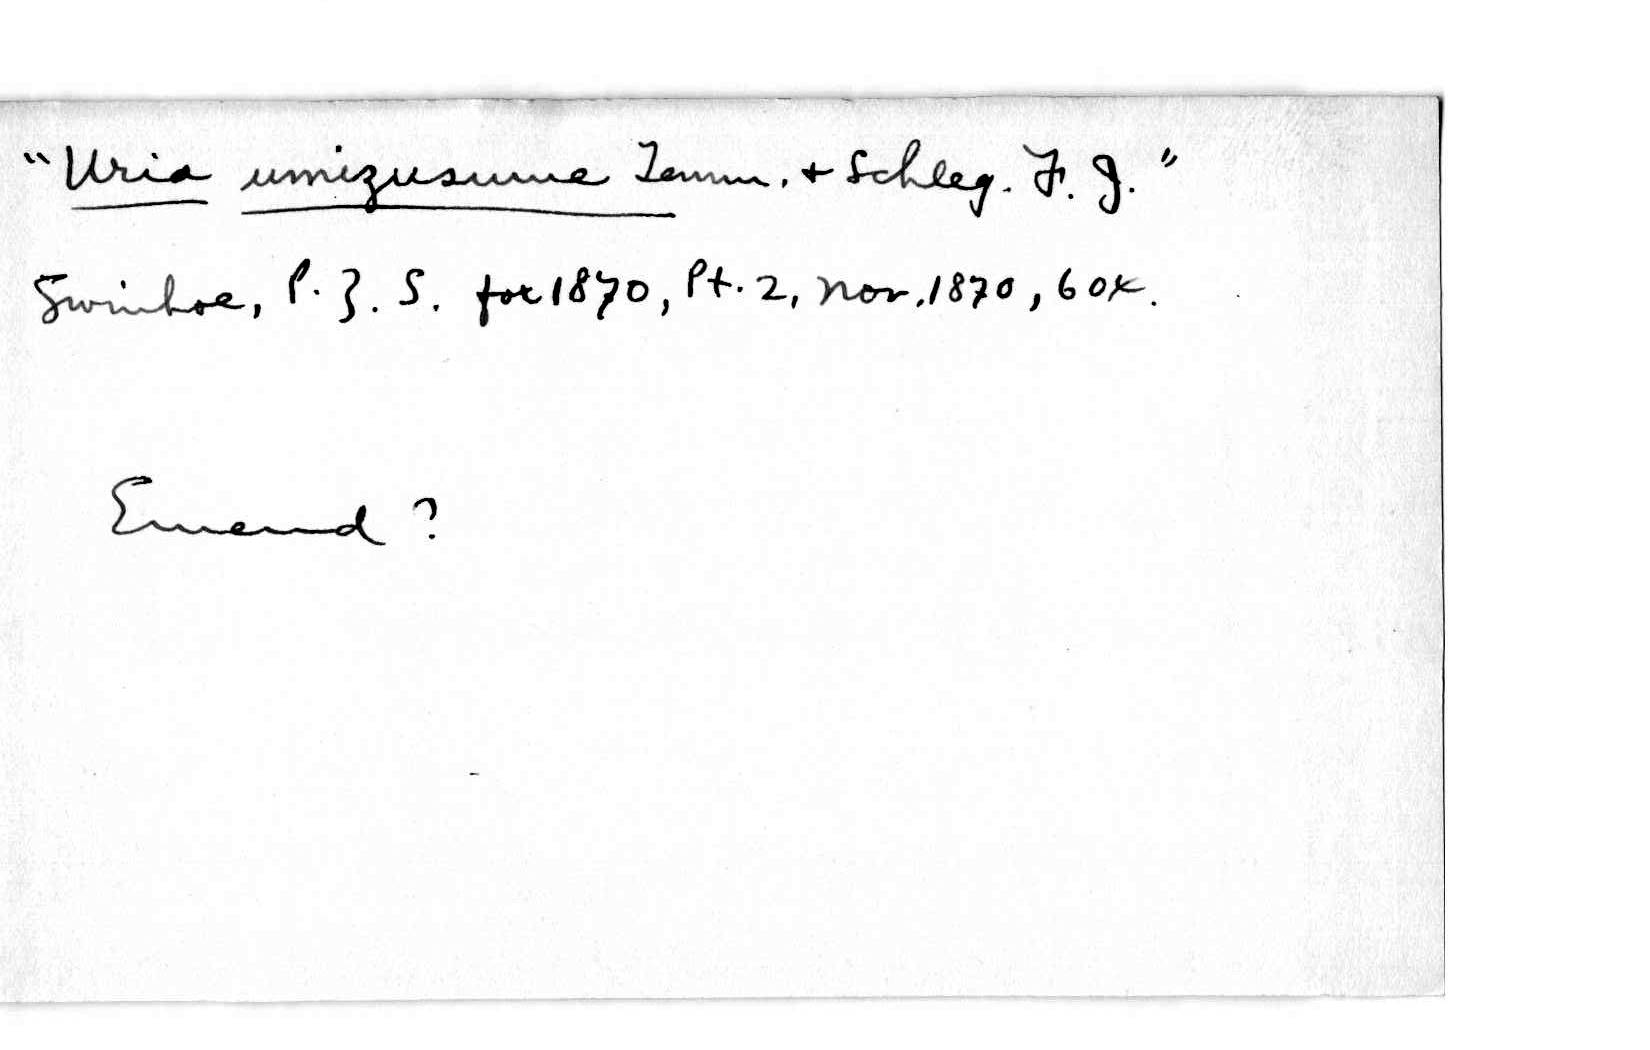 "Uria umizusume Temm. + Schleg. F. J."
Swinhoe, P. Z. S. for 1870, Pt. 2, Nov. 1870, 604.
Emend ?